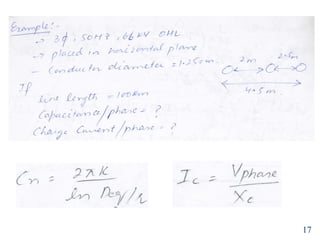 Example:-
→ 3φ, 50HZ, 66KV OHL
→ placed in horizontal plane
- Conductor diameter = 1.25cm.
2m 2.5m
4.5m.
If
line length = 100km
Capacitance/phase = ?
Charge Current/phase = ?
Cn = 2πk / ln Deq/r
Ic = Vphase / Xc
17